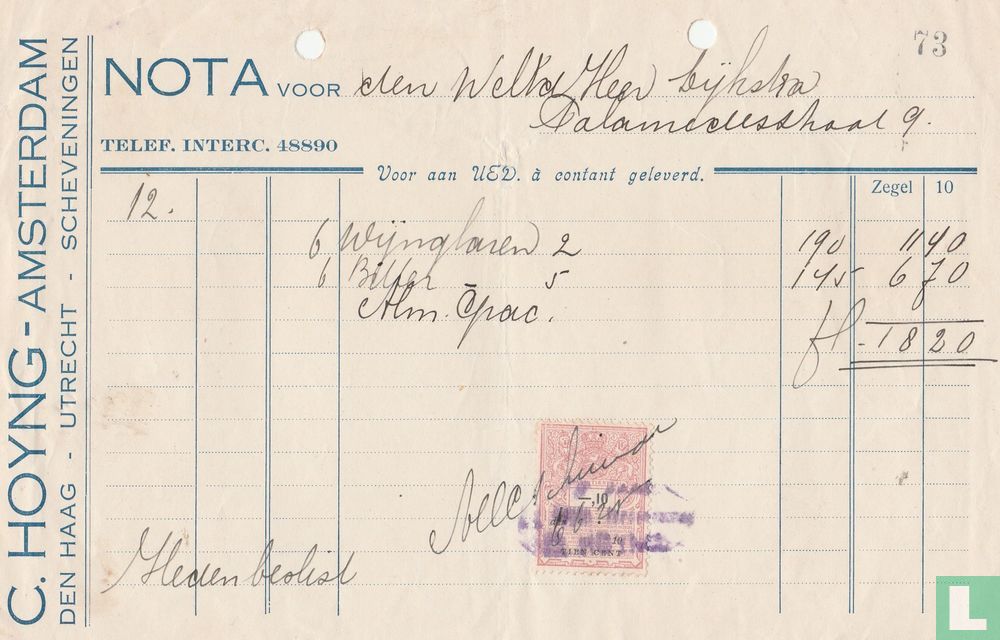 C. HOYNG - AMSTERDAM
DEN HAAG - UTRECHT - SCHEVENINGEN
73
NOTA VOOR den Weled Heer Dijkstra
Palamedesstraat 9.
TELEF. INTERC. 48890
Voor aan UED. à contant geleverd.
Zegel 10
12.
6 Wijnglazen 2 190 1140
6 Bitter 5 145 670
fl - 1820
-,10
TIEN CENT
Heden beslist
L